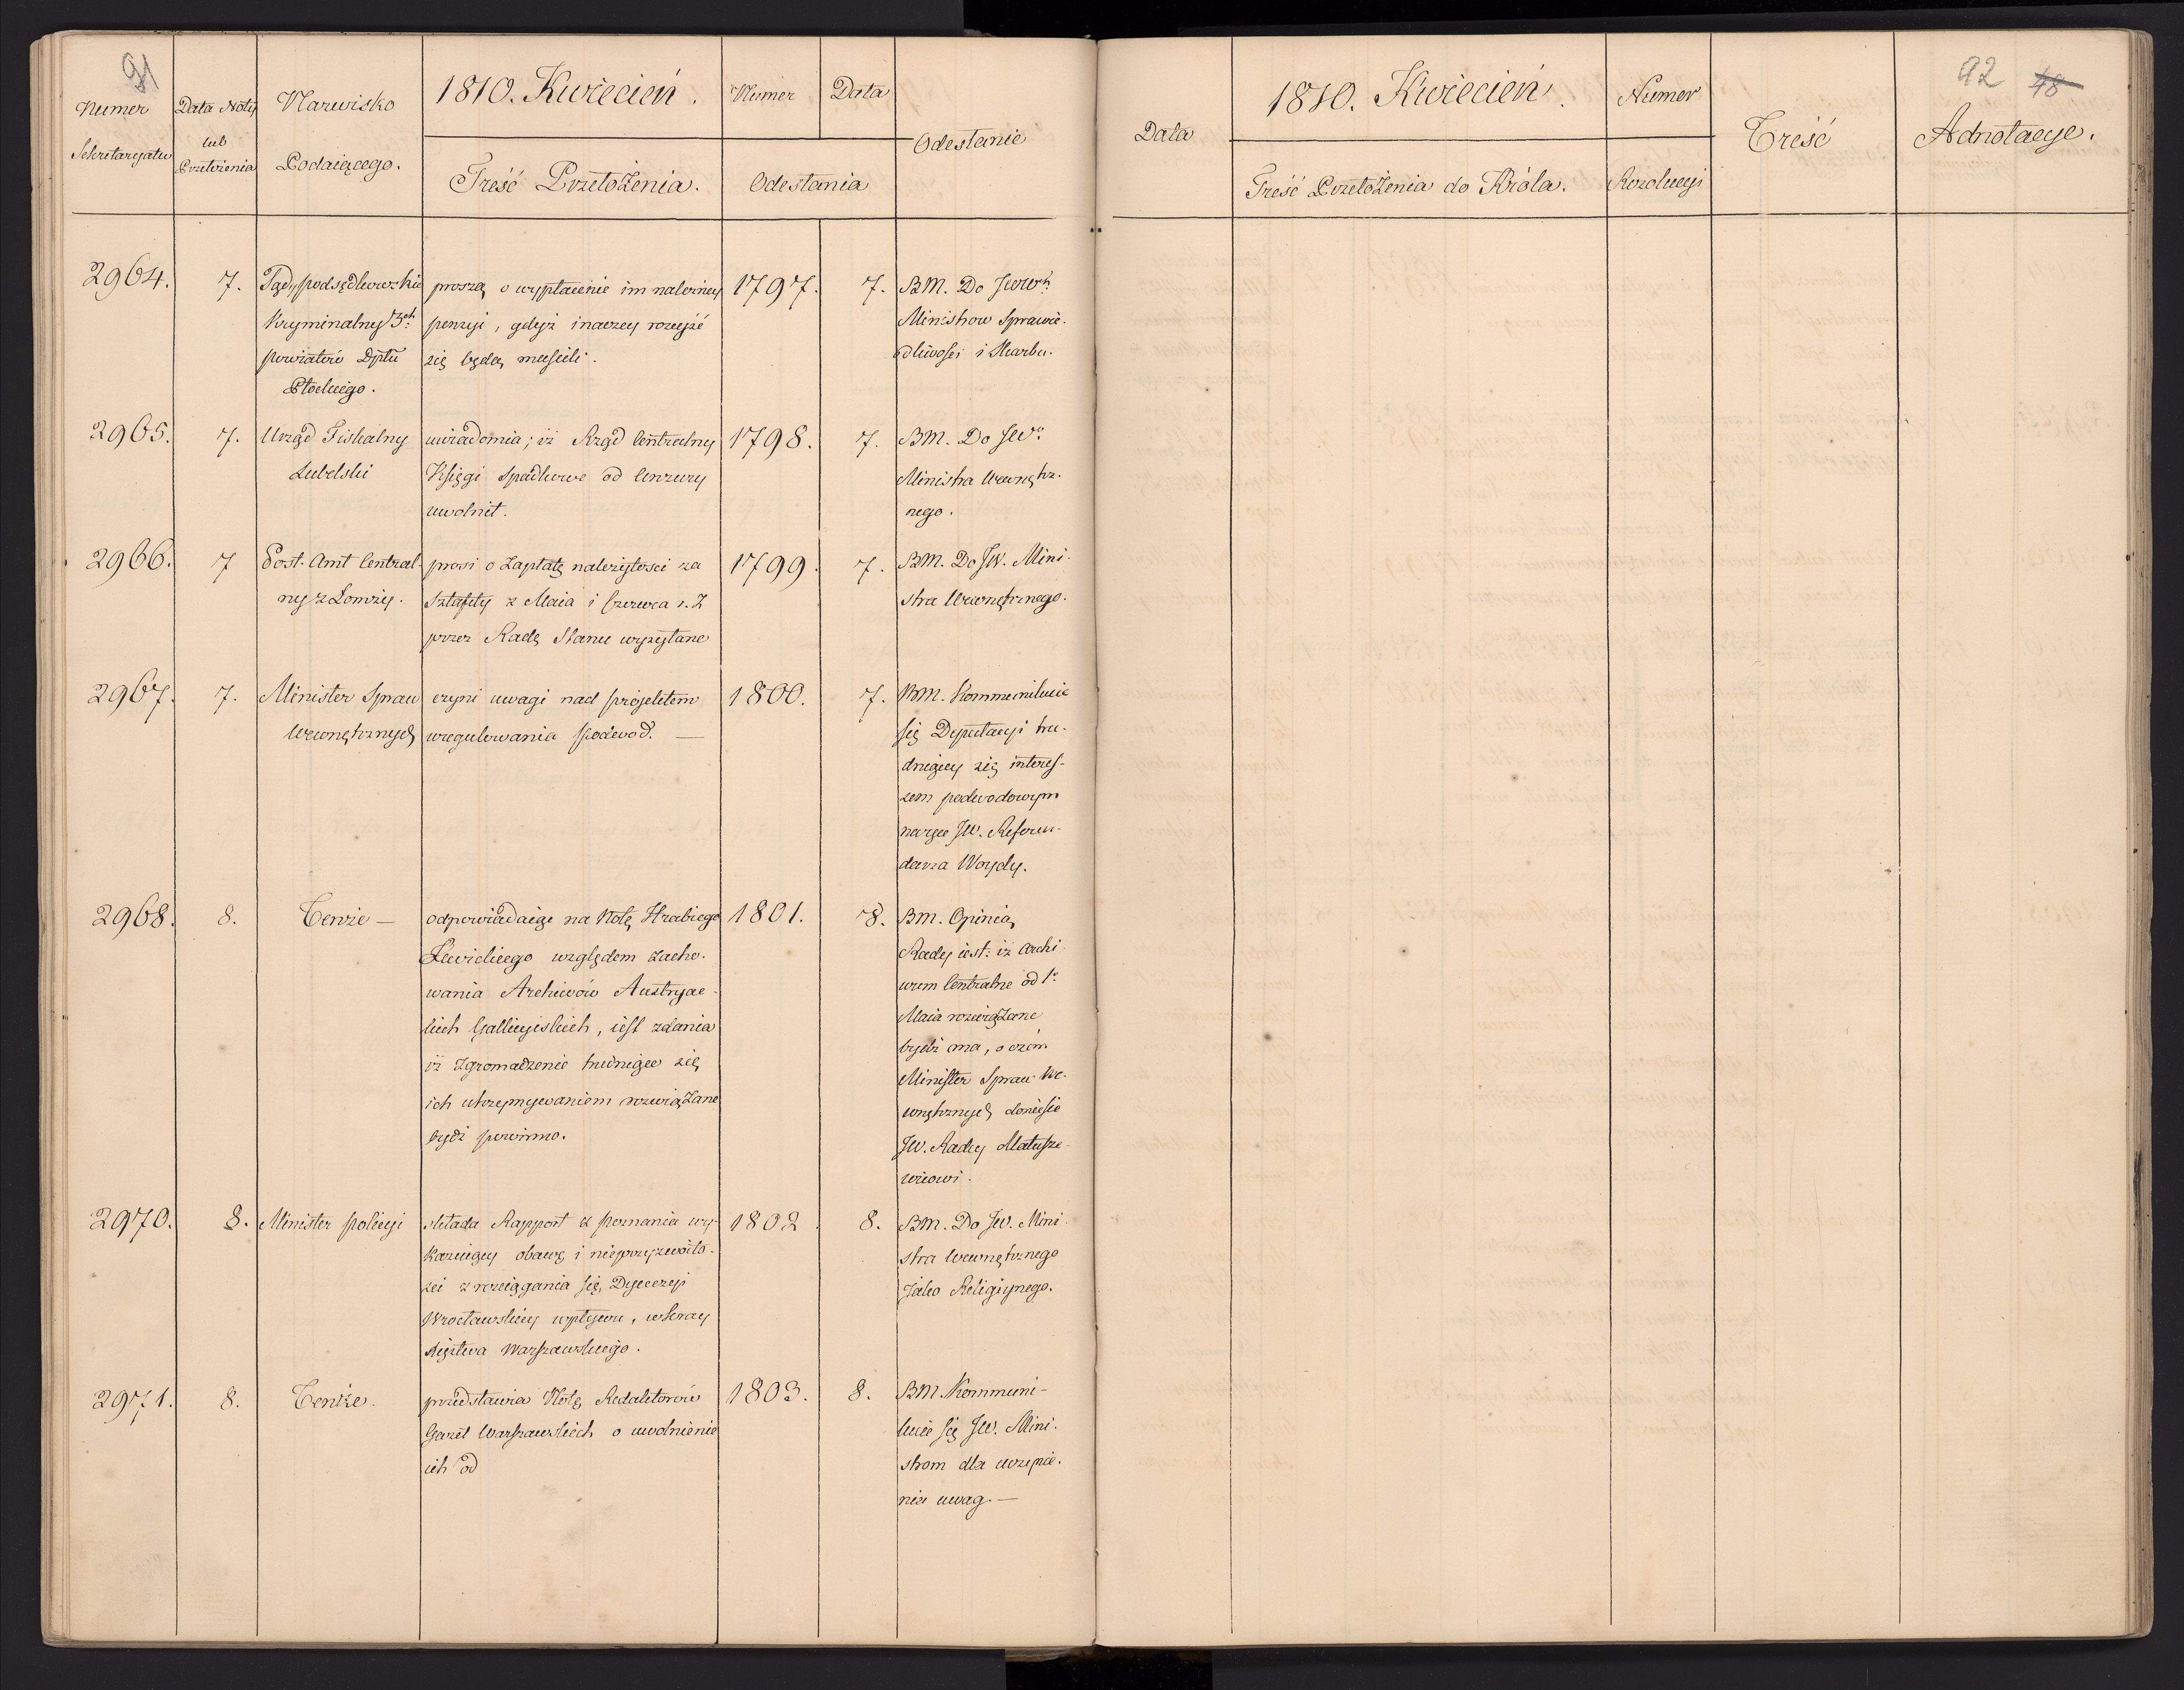 91
Numer
Sekretaryatu
Data Noty
lub
Przełożenia
Nazwisko
Podaiącego.
1810. Kwiecień.
Treść Przełożenia.
Numer
Data
Odesłania
Odesłanie
2964.
7.
Sądy podsędkowskie
Kryminalny 3ch
powiatów Dptu
Płockiego.
proszą o wypłacenie im należney
penzyi, gdyż inaczey rozeyść
się będą musieli.
1797.
7.
BM. Do JWWch
Ministrow Sprawie-
dliwości i Skarbu.
2965.
7.
Urząd Fiskalny
Lubelski
uwiadomia; iż Rząd Centralny
Księgi Spadkowe od Cenzury
uwolnił.
1798.
7.
BM. Do JWo
Ministra Wewnętrz-
nego.
2966.
7
Post. Amt Central-
ny z Łomży.
prosi o Zapłatę należytości za
Sztafety z Maia i Czerwca r. Z
przez Radę Stanu wysyłane
1799.
7.
BM. Do JW. Mini-
stra Wewnętrznego.
2967.
7.
Minister Spraw
Wewnętrznych
czyni uwagi nad projektem
uregulowania podwod. —
1800.
7.
BM. Kommunikuie
się Deputacyi tru-
dniącey się interes-
sem podwodowym
na ręce JW. Referen-
darza Woydy.
2968.
8.
Tenże —
odpowiadaiąc na Notę Hrabiego
Lewickiego względem zacho-
wania Archiwów Austryac-
kich Gallicyiskich, iest zdania
iż Zgromadzenie trudniące się
ich utrzymywaniem rozwiązane
bydź powinno.
1801.
8.
BM. Opinią
Rady iest: iż Archi-
wum Centralne od 1o
Maia rozwiązane
bydź ma, o czém
Minister Spraw We-
wnętrznych doniesie
JW. Radcy Matusze-
wiczowi.
2970.
8.
Minister policyi
składa Rapport z Poznania wy-
kazuiący obawę i nieprzyzwoito-
ści z rozciągania się Dyecezyi
Wrocławskiey wpływu, w kray
Xięstwa Warszawskiego.
1802.
8.
BM. Do JW. Mini-
stra Wewnętrznego
Jako Religiynego.
2971.
8.
Tenże.
przedstawia Notę Redaktorów
Gazet Warszawskich o uwolnienie
ich od
1803.
8.
BM. Kommuni-
kuie się JW. Mini-
strom dla uczynie-
nia uwag. —
92 48
Data
1810. Kwiecień.
Treść Przełożenia do Króla.
Numer
Rezolucyi
Treść
Adnotacye.